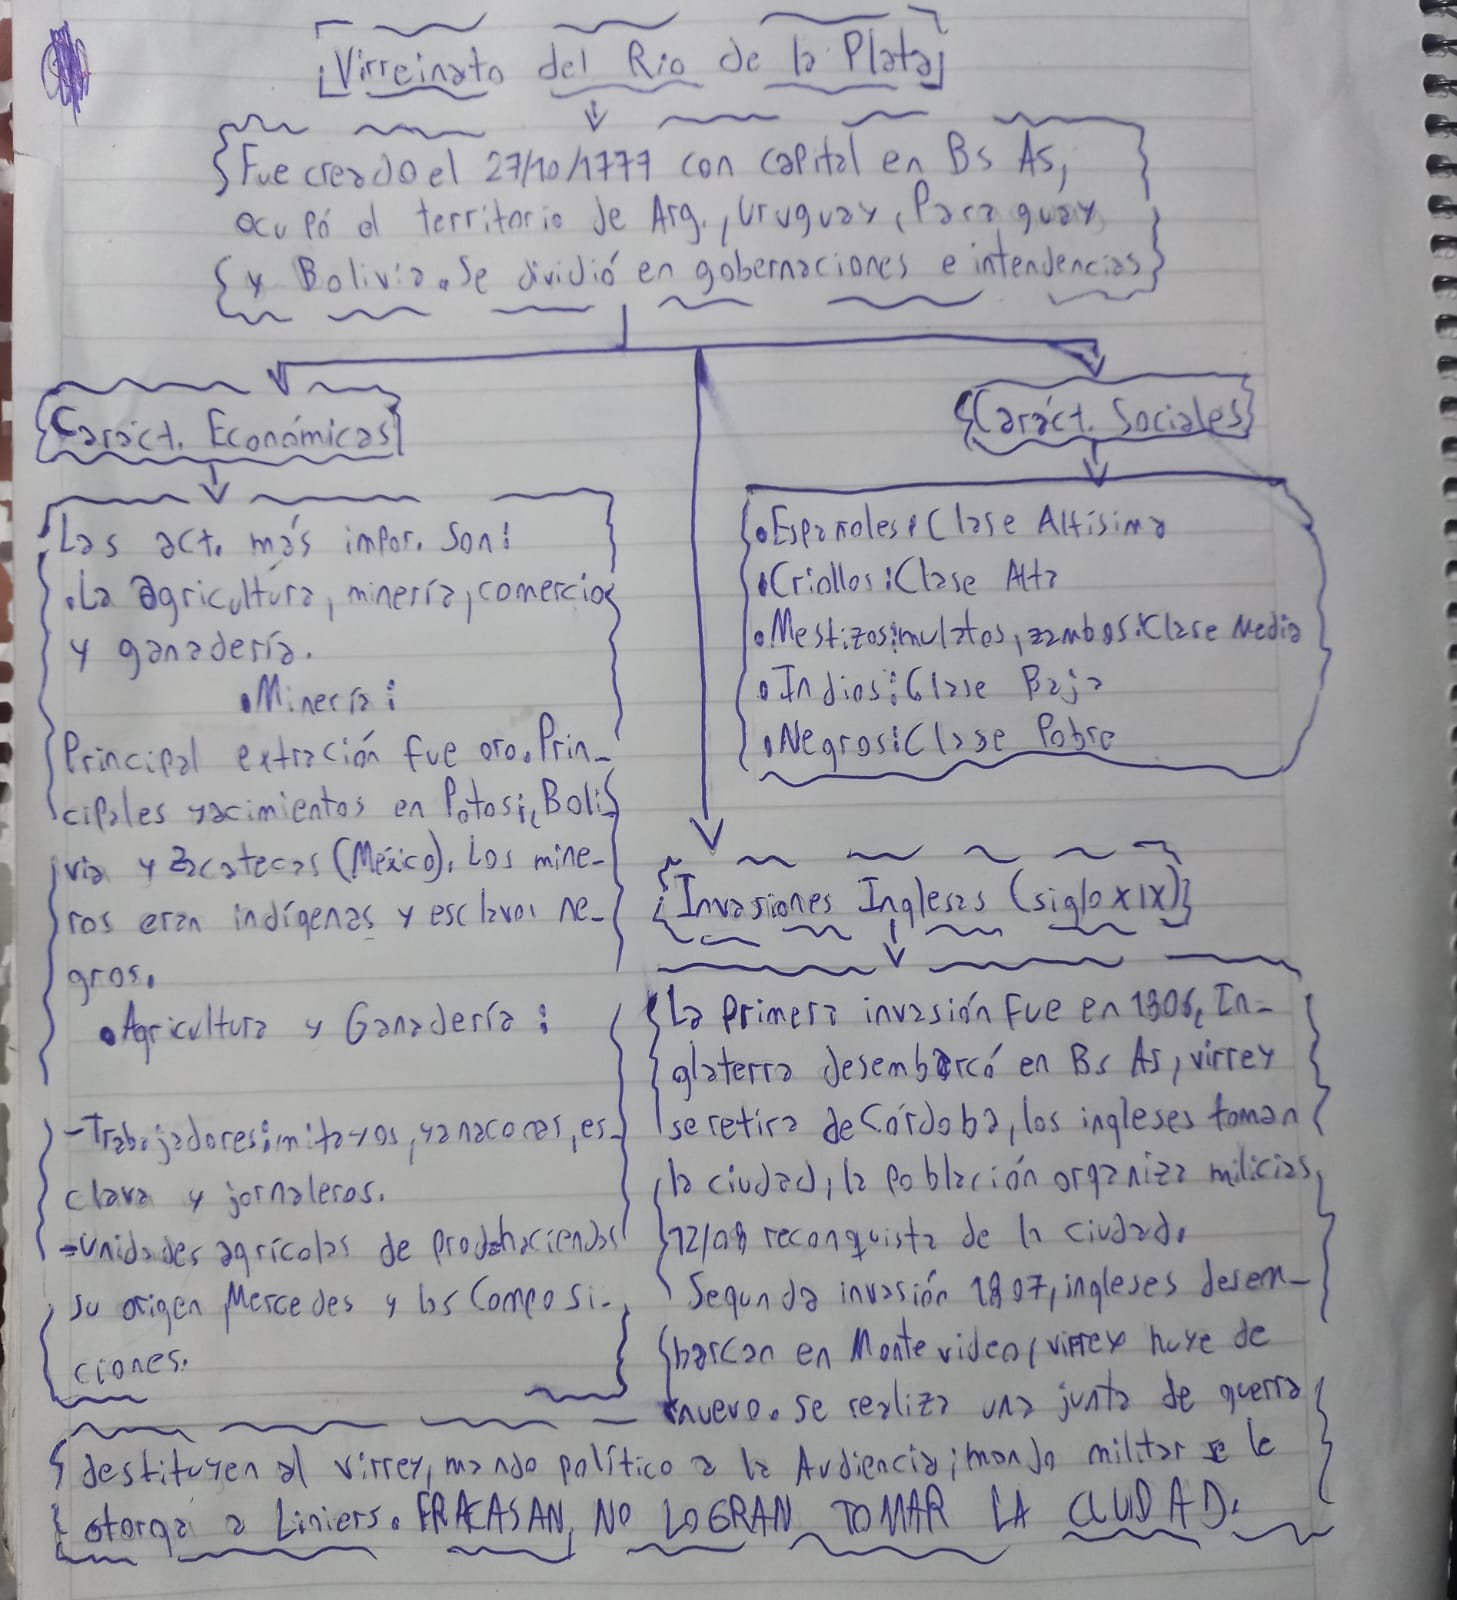 Virreinato del Rio de la Plata
Fue creado el 27/10/1777 con capital en Bs As,
ocupó el territorio de Arg., Uruguay, Paraguay
y Bolivia. Se dividió en gobernaciones e intendencias
Caráct. Económicas
Las act. más impor. son:
•La agricultura, minería, comercio
y ganadería.
•Minería:
Principal extración fue oro. Prin-
cipales yacimientos en Potosí, Boli
via y Zacatecas (México). Los mine-
ros eran indígenas y esclavos ne-
gros.
•Agricultura y Ganadería:
-Trabajadores: mitayos, yanaconas, es-
clava y jornaleros.
-Unidades agrícolas de prod haciendas
su origen Mercedes y las Composi-
ciones.
Caráct. Sociales
•Españoles: Clase Altísima
•Criollos: Clase Alta
•Mestizos: mulatos, zambos: Clase Media
•Indios: Clase Baja
•Negros: Clase Pobre
Invasiones Inglesas (siglo XIX)
La primera invasión fue en 1806, In-
glaterra desembarcó en Bs As, virrey
se retira de Córdoba, los ingleses toman
la ciudad, la población organiza milicias,
12/08 reconquista de la ciudad.
Segunda invasión 1807, ingleses desem-
barcan en Montevideo, virrey huye de
nuevo. se realiza una junta de guerra
destituyen al virrey, mando político a la Audiencia; mando militar se le
otorga a Liniers. FRACASAN, NO LOGRAN TOMAR LA CIUDAD.